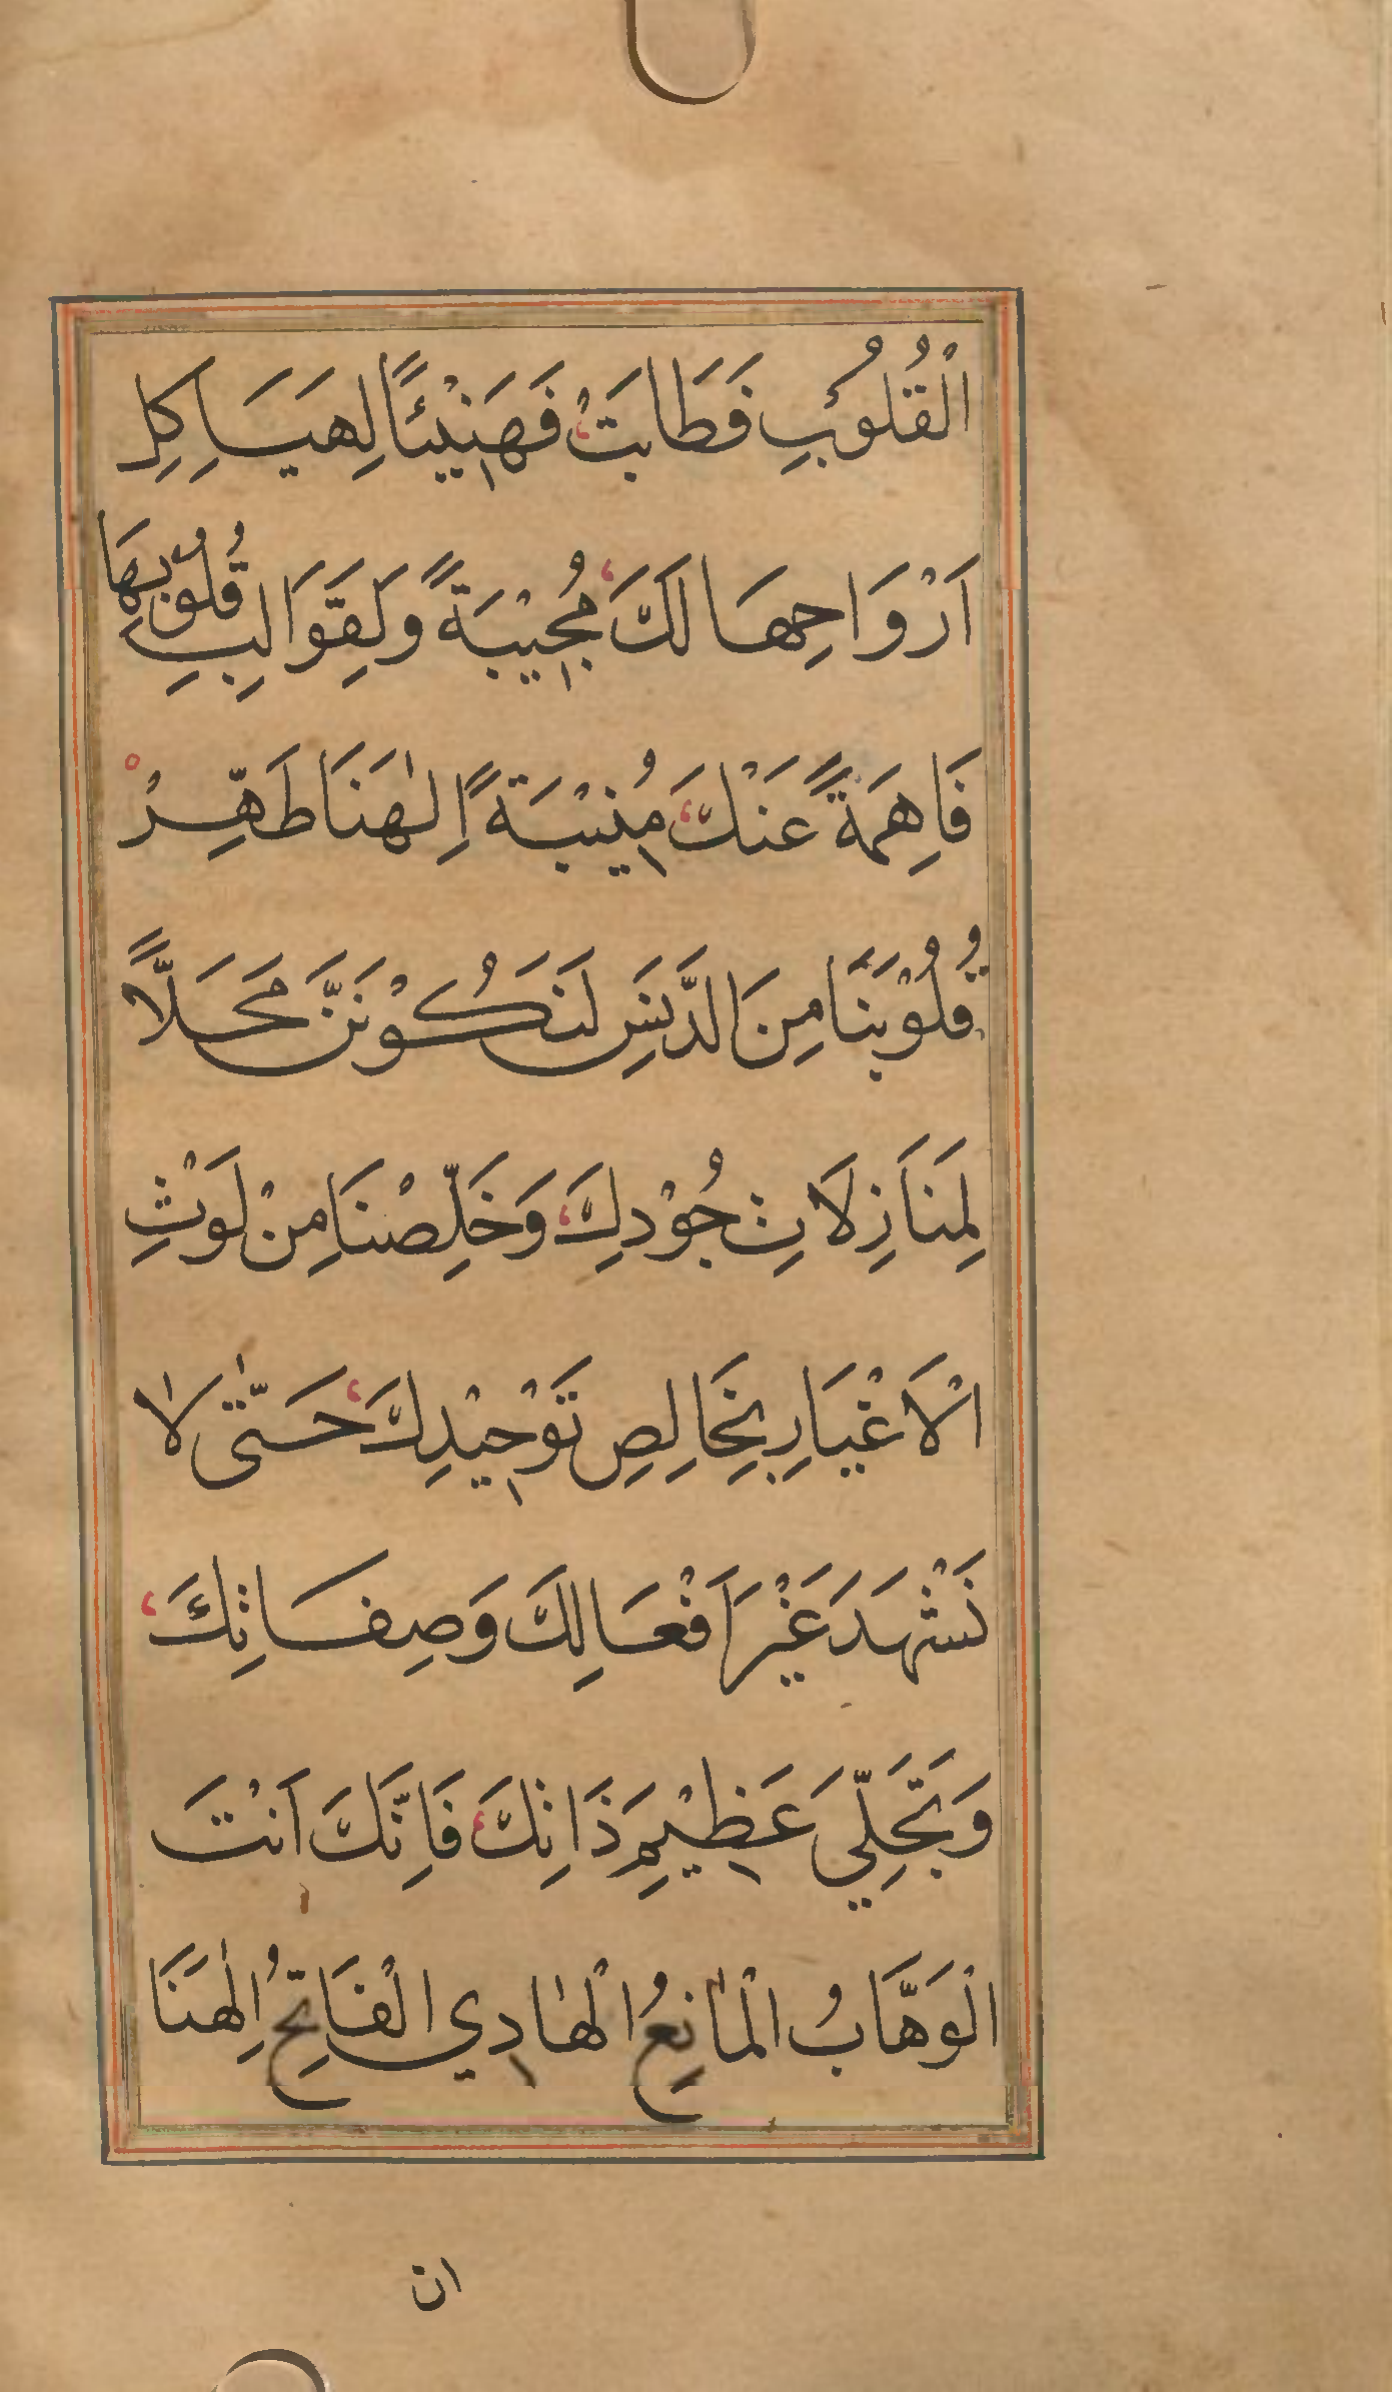 الْقُلُوبِ فَطَابَتْ فَهَنِيْئًا لِهَيَاكِلِ
اَرْوَاحِهَا لَكَ مُجِيْبَةً وَلِقَوَالِبِ قُلُوْبِهَا
فَاهِمَةً عَنْكَ مُنِيْبَةً اِلٰهَنَا طَهِّرْ
قُلُوْبَنَا مِنَ الدَّنَسِ لَنَكُوْنَنَّ مَحَلًّا
لِمَنَازِلَاتِ جُوْدِكَ وَخَلِّصْنَا مِنْ لَوْثِ
الْاَغْيَارِ بِخَالِصِ تَوْحِيْدِكَ حَتّٰى لَا
نَشْهَدَ غَيْرَ اَفْعَالِكَ وَصِفَاتِكَ
وَتَجَلِّيَ عَظِيْمِ ذَاتِكَ فَاِنَّكَ اَنْتَ
الْوَهَّابُ الْمَانِعُ الْهَادِي الْفَاتِحُ اِلٰهَنَا
ان